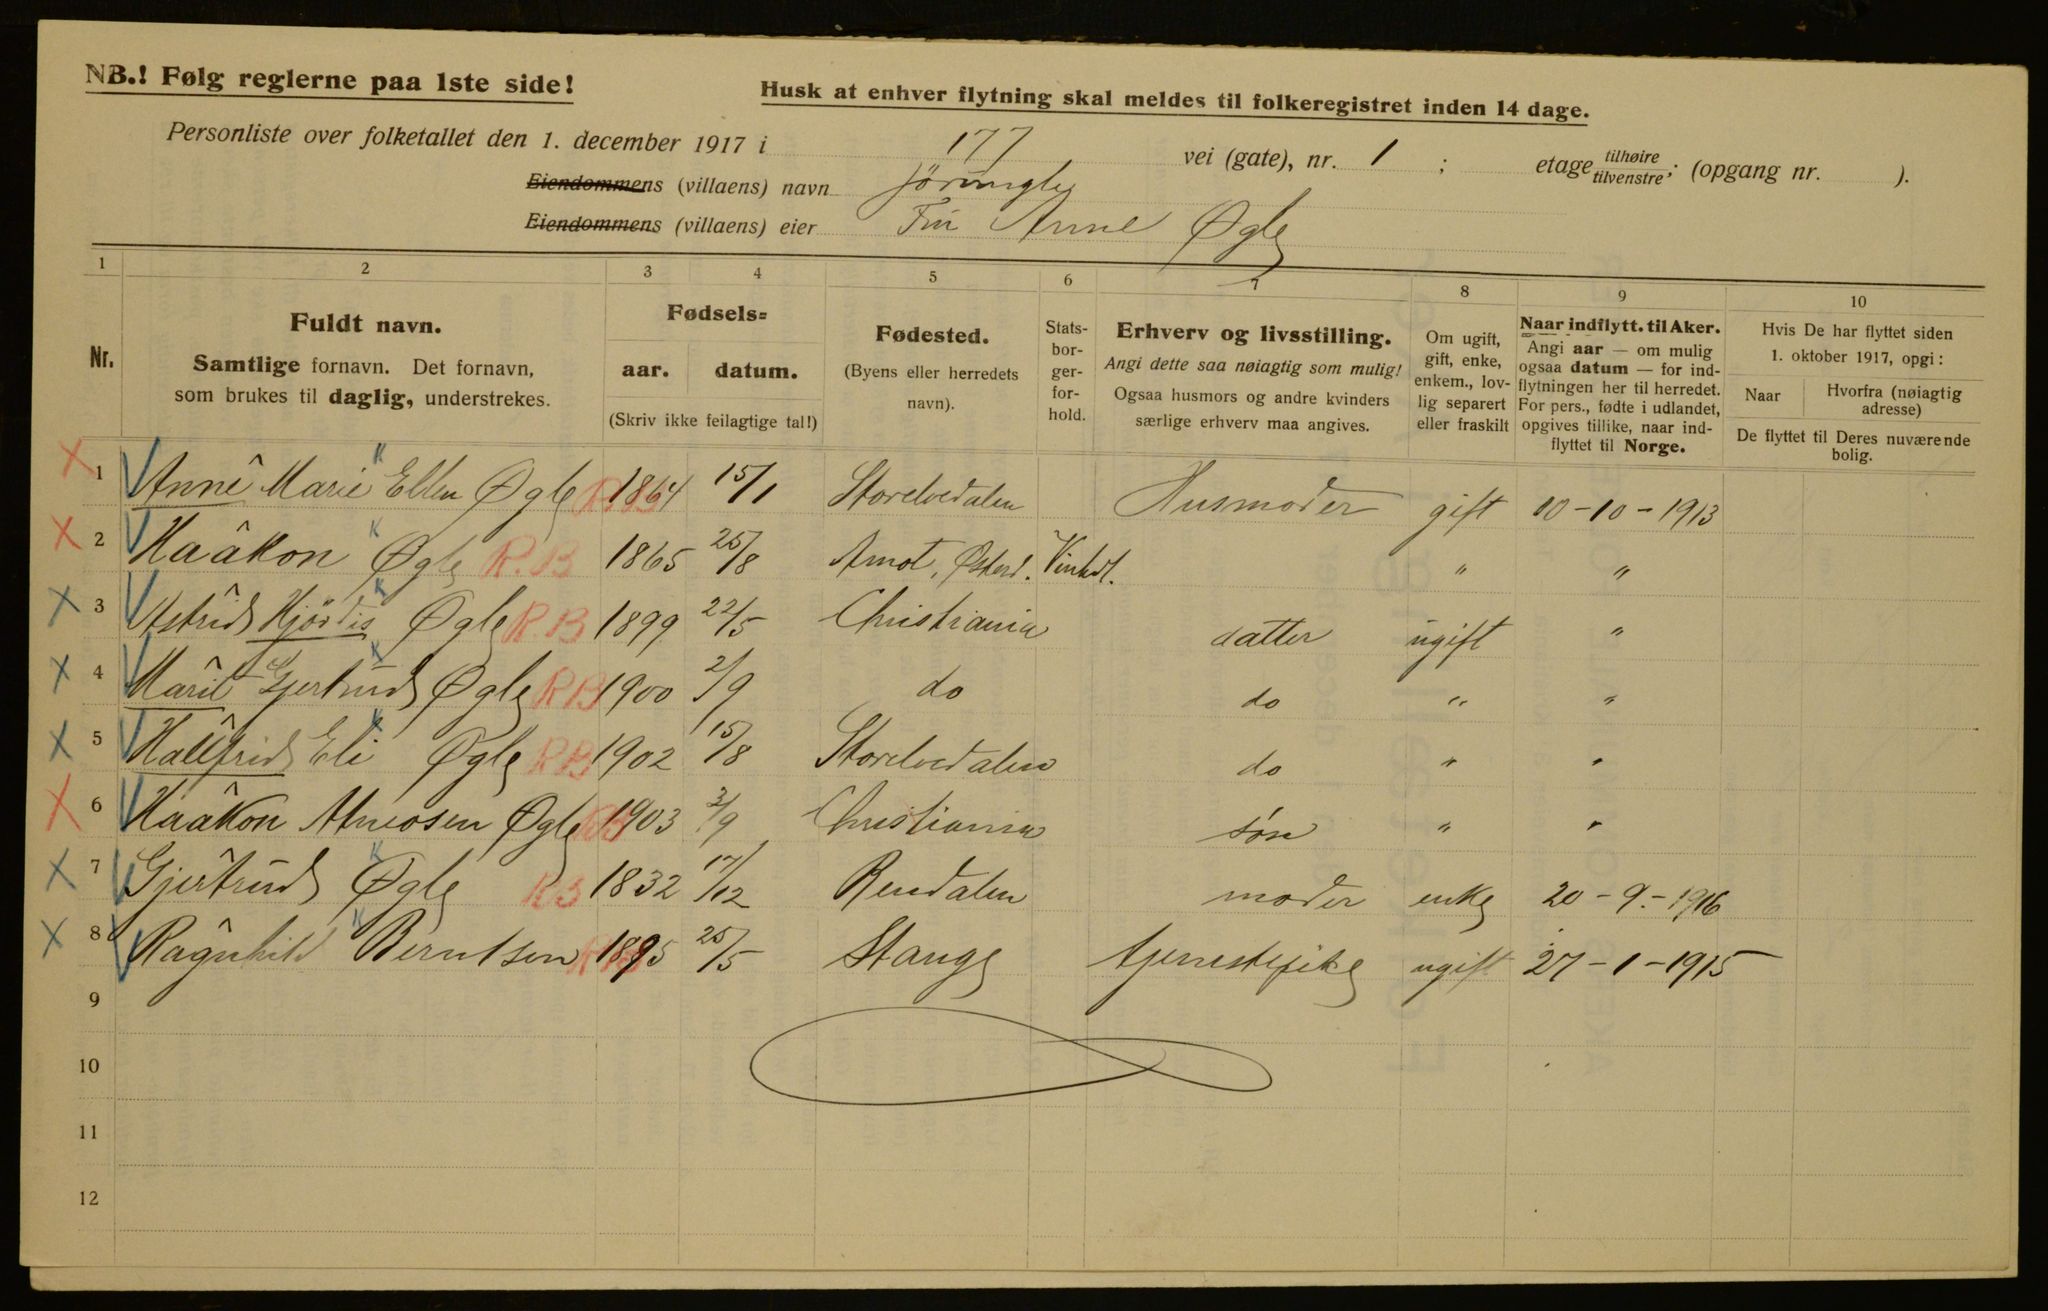 NB.! Følg reglerne paa 1ste side!
Husk at enhver flytning skal meldes til folkeregistret inden 14 dage.
Personliste over folketallet den 1. december 1917 i 177 vei (gate), nr. 1 ; etage tilhøire tilvenstre; (opgang nr. ).
Eiendommens (villaens) navn
Eiendommens (villaens) eier Fru Anne Øgle
1 2 3 4 5 6 7 8 9 10
Nr.
Fuldt navn.
Samtlige fornavn. Det fornavn,
som brukes til daglig, understrekes.
Fødsels=
aar. datum.
(Skriv ikke feilagtige tal!)
Fødested.
(Byens eller herredets
navn).
Stats-
bor-
ger-
for-
hold.
Erhverv og livsstilling.
Angi dette saa nøiagtig som mulig!
Ogsaa husmors og andre kvinders
særlige erhverv maa angives.
Om ugift,
gift, enke,
enkem., lov-
lig separert
eller fraskilt
Naar indflytt. til Aker.
Angi aar — om mulig
ogsaa datum — for ind-
flytningen her til herredet.
For pers., fødte i udlandet,
opgives tillike, naar ind-
flyttet til Norge.
Hvis De har flyttet siden
1. oktober 1917, opgi:
Naar
Hvorfra (nøiagtig
adresse)
De flyttet til Deres nuværende
bolig.
1 Anne Marie Ellen Øgle R.B 1864 15/1 Storelvedalen Husmoder gift 10-10-1913
2 Haakon Øgle R.B 1865 25/8 Amot, Østerd. " "
3 Astrid Hjördis Øgle R.B 1899 22/5 Christiania datter ugift "
4 Marit Gjertrud Øgle RB 1900 2/9 do do " "
5 Hallfrid Eli Øgle RB 1902 15/8 Storelvedalen do " "
6 Haakon Øgle RB 1903 2/9 Christiania søn " "
7 Gjertrud Øgle RB 1832 17/12 Rendalen moder enke 20-9-1916
8 Ragnhild Berntsen RB 1895 25/5 Stange tjenestepike ugift 27-1-1915
9
10
11
12